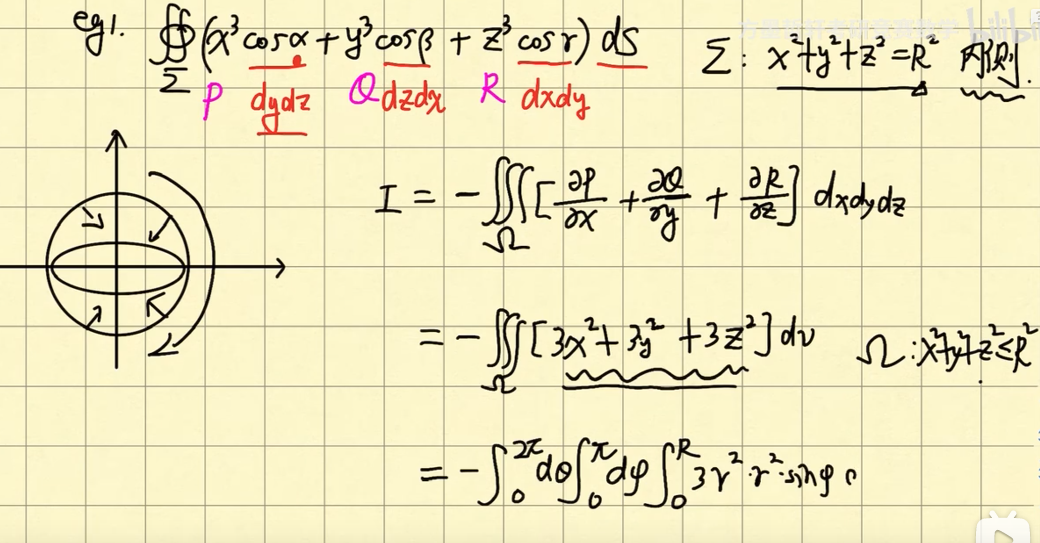 eg1. ∯_Σ (x³ cosα + y³ cosβ + z³ cosγ) ds Σ: x²+y²+z²=R² 内侧.
P dydz Q dzdx R dxdy
I = -∭_Ω [∂P/∂x + ∂Q/∂y + ∂R/∂z] dxdydz
= -∭_Ω [3x²+3y²+3z²] dv Ω: x²+y²+z²≤R²
= -∫₀^{2π} dθ ∫₀^π dφ ∫₀^R 3r²·r²·sinφ
bilibili